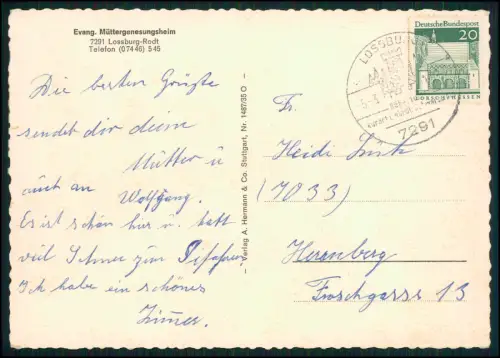 Evang. Müttergenesungsheim
7291 Lossburg-Rodt
Telefon (07446) 545
Die besten Grüße
sendet dir deine
Mutter u
auch an Wolfgang.
Es ist schön hier u. hatt
viel Schnee zum
Ich habe ein schönes
Zimmer.
– Verlag A. Hermann & Co. Stuttgart, Nr. 1487/35 O –
Deutsche Bundespost
20
LORSCH/HESSEN
LOSSBURG
7291
Fr.
Heidi
(7033)
Herrenberg
Froschgasse 13